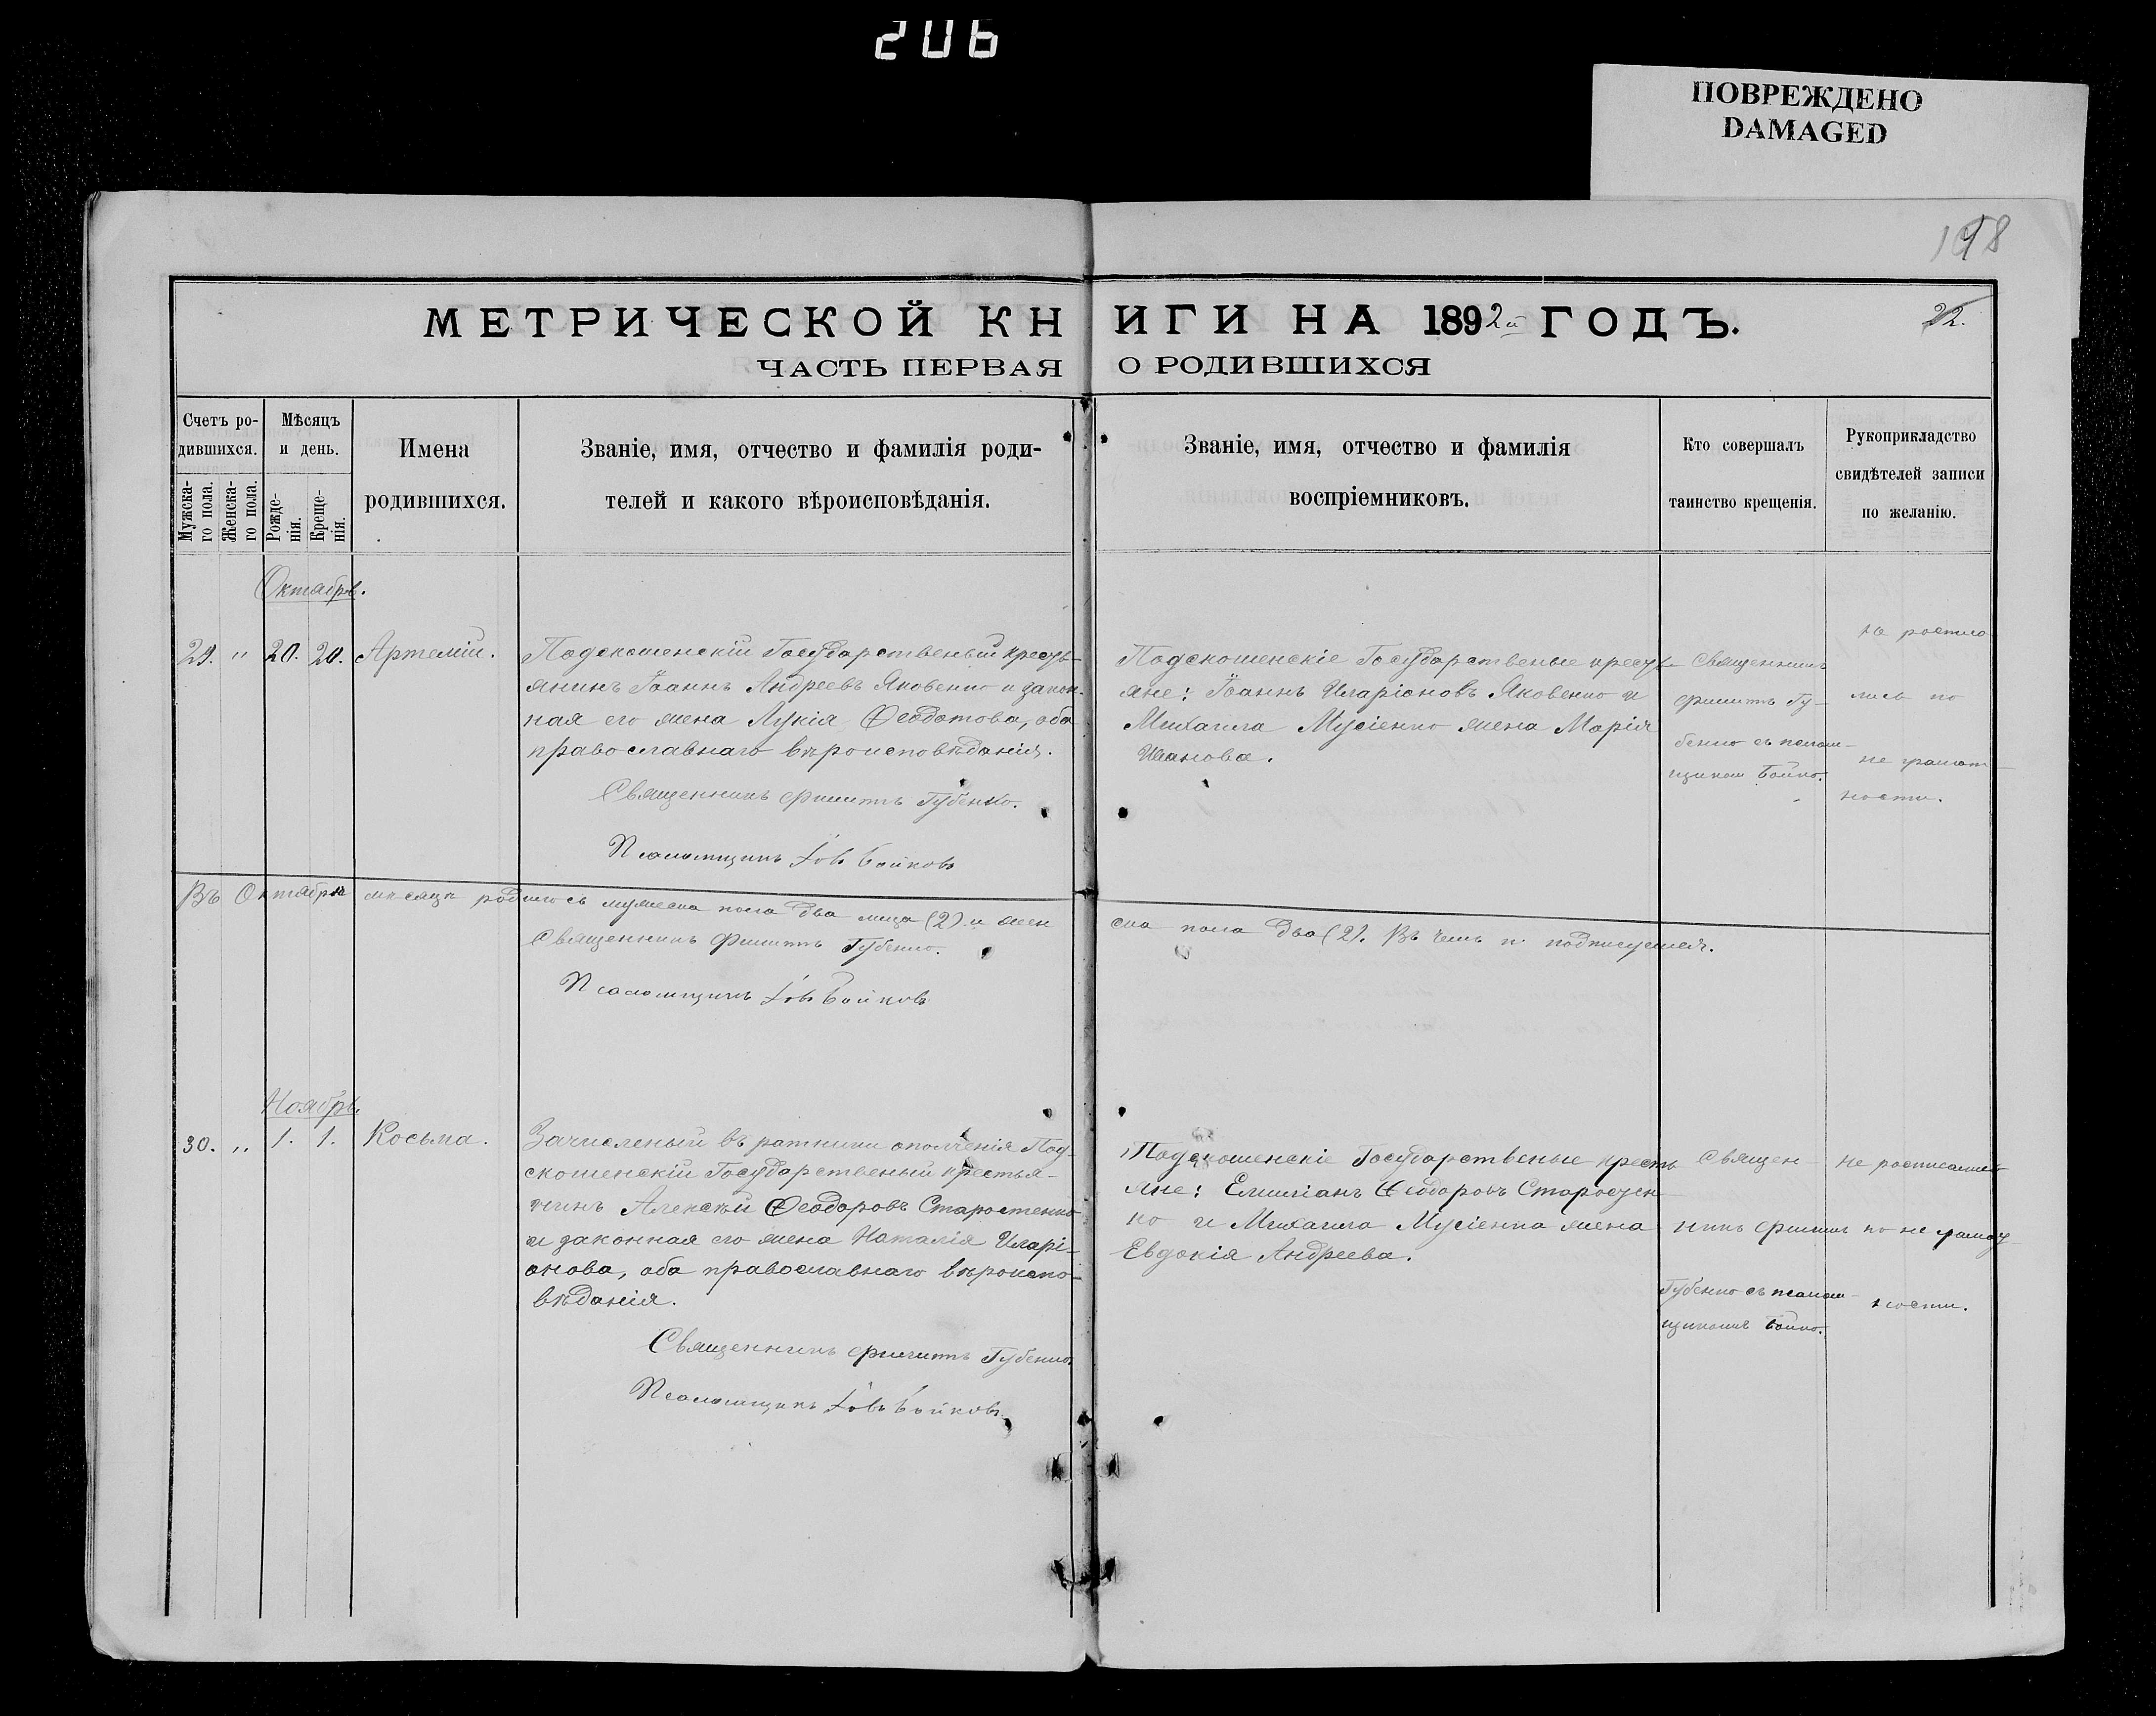 206
ПОВРЕЖДЕНО
DAMAGED
198
МЕТРИЧЕСКОЙ КНИГИ НА 1892й ГОДЪ.
22.
ЧАСТЬ ПЕРВАЯ О РОДИВШИХСЯ
Счетъ ро-
дившихся.
Мужска-
го пола.
Женска-
го пола.
Мѣсяцъ
и день.
Рожде-
нія.
Креще-
нія.
Имена
родившихся.
Званіе, имя, отчество и фамилія роди-
телей и какого вѣроисповѣданія.
Званіе, имя, отчество и фамилія
воспріемниковъ.
Кто совершалъ
таинство крещенія.
Рукоприкладство
свидѣтелей записи
по желанію.
Октябрь.
29. " 20. 20. Артемій.
Подскошенскій Государственый кресть-
янинъ Іоаннъ Андреевъ Яковенко и закон-
ная его жена Лукія Ѳеодотова, оба
православнаго вѣроисповѣданія.
Священникъ Филиппъ Губенко.
Псаломщикъ Іовъ Бойковъ
Подскошенскіе Государственые кресть-
яне: Іоаннъ Иларіоновъ Яковенко и
Михаила Мусіенко жена Марія
Иванова.
Священникъ
Филиппъ Гу-
бенко съ псалом-
щиком Бойко.
лись по
не грамот-
ности.
Въ Октябрѣ мѣсяцѣ родилось мужеска пола два лица (2) и жен
ска пола два (2). Въ чемъ и подписуемся.
Священникъ Филиппъ Губенко.
Псаломщикъ Іовъ Бойковъ
Ноябрь.
30. " 1. 1. Косьма.
Зачисленый въ ратники ополченія Под-
скошенскій Государственый крестья-
нинъ Алексѣй Ѳеодоровъ Старостенко
и законная его жена Наталія Иларі-
онова, оба православнаго вѣроиспо-
вѣданія.
Священникъ Филиппъ Губенко
Псаломщикъ Іовъ Бойковъ
Подскошенскіе Государственые кресть
яне: Емиліанъ Ѳеодоровъ Старостен-
ко и Михаила Мусіенка жена
Евдокія Андреева.
Священ-
никъ Филип
Губенко съ псалом-
щикомъ Бойко.
не росписались
по не грамот-
ности.